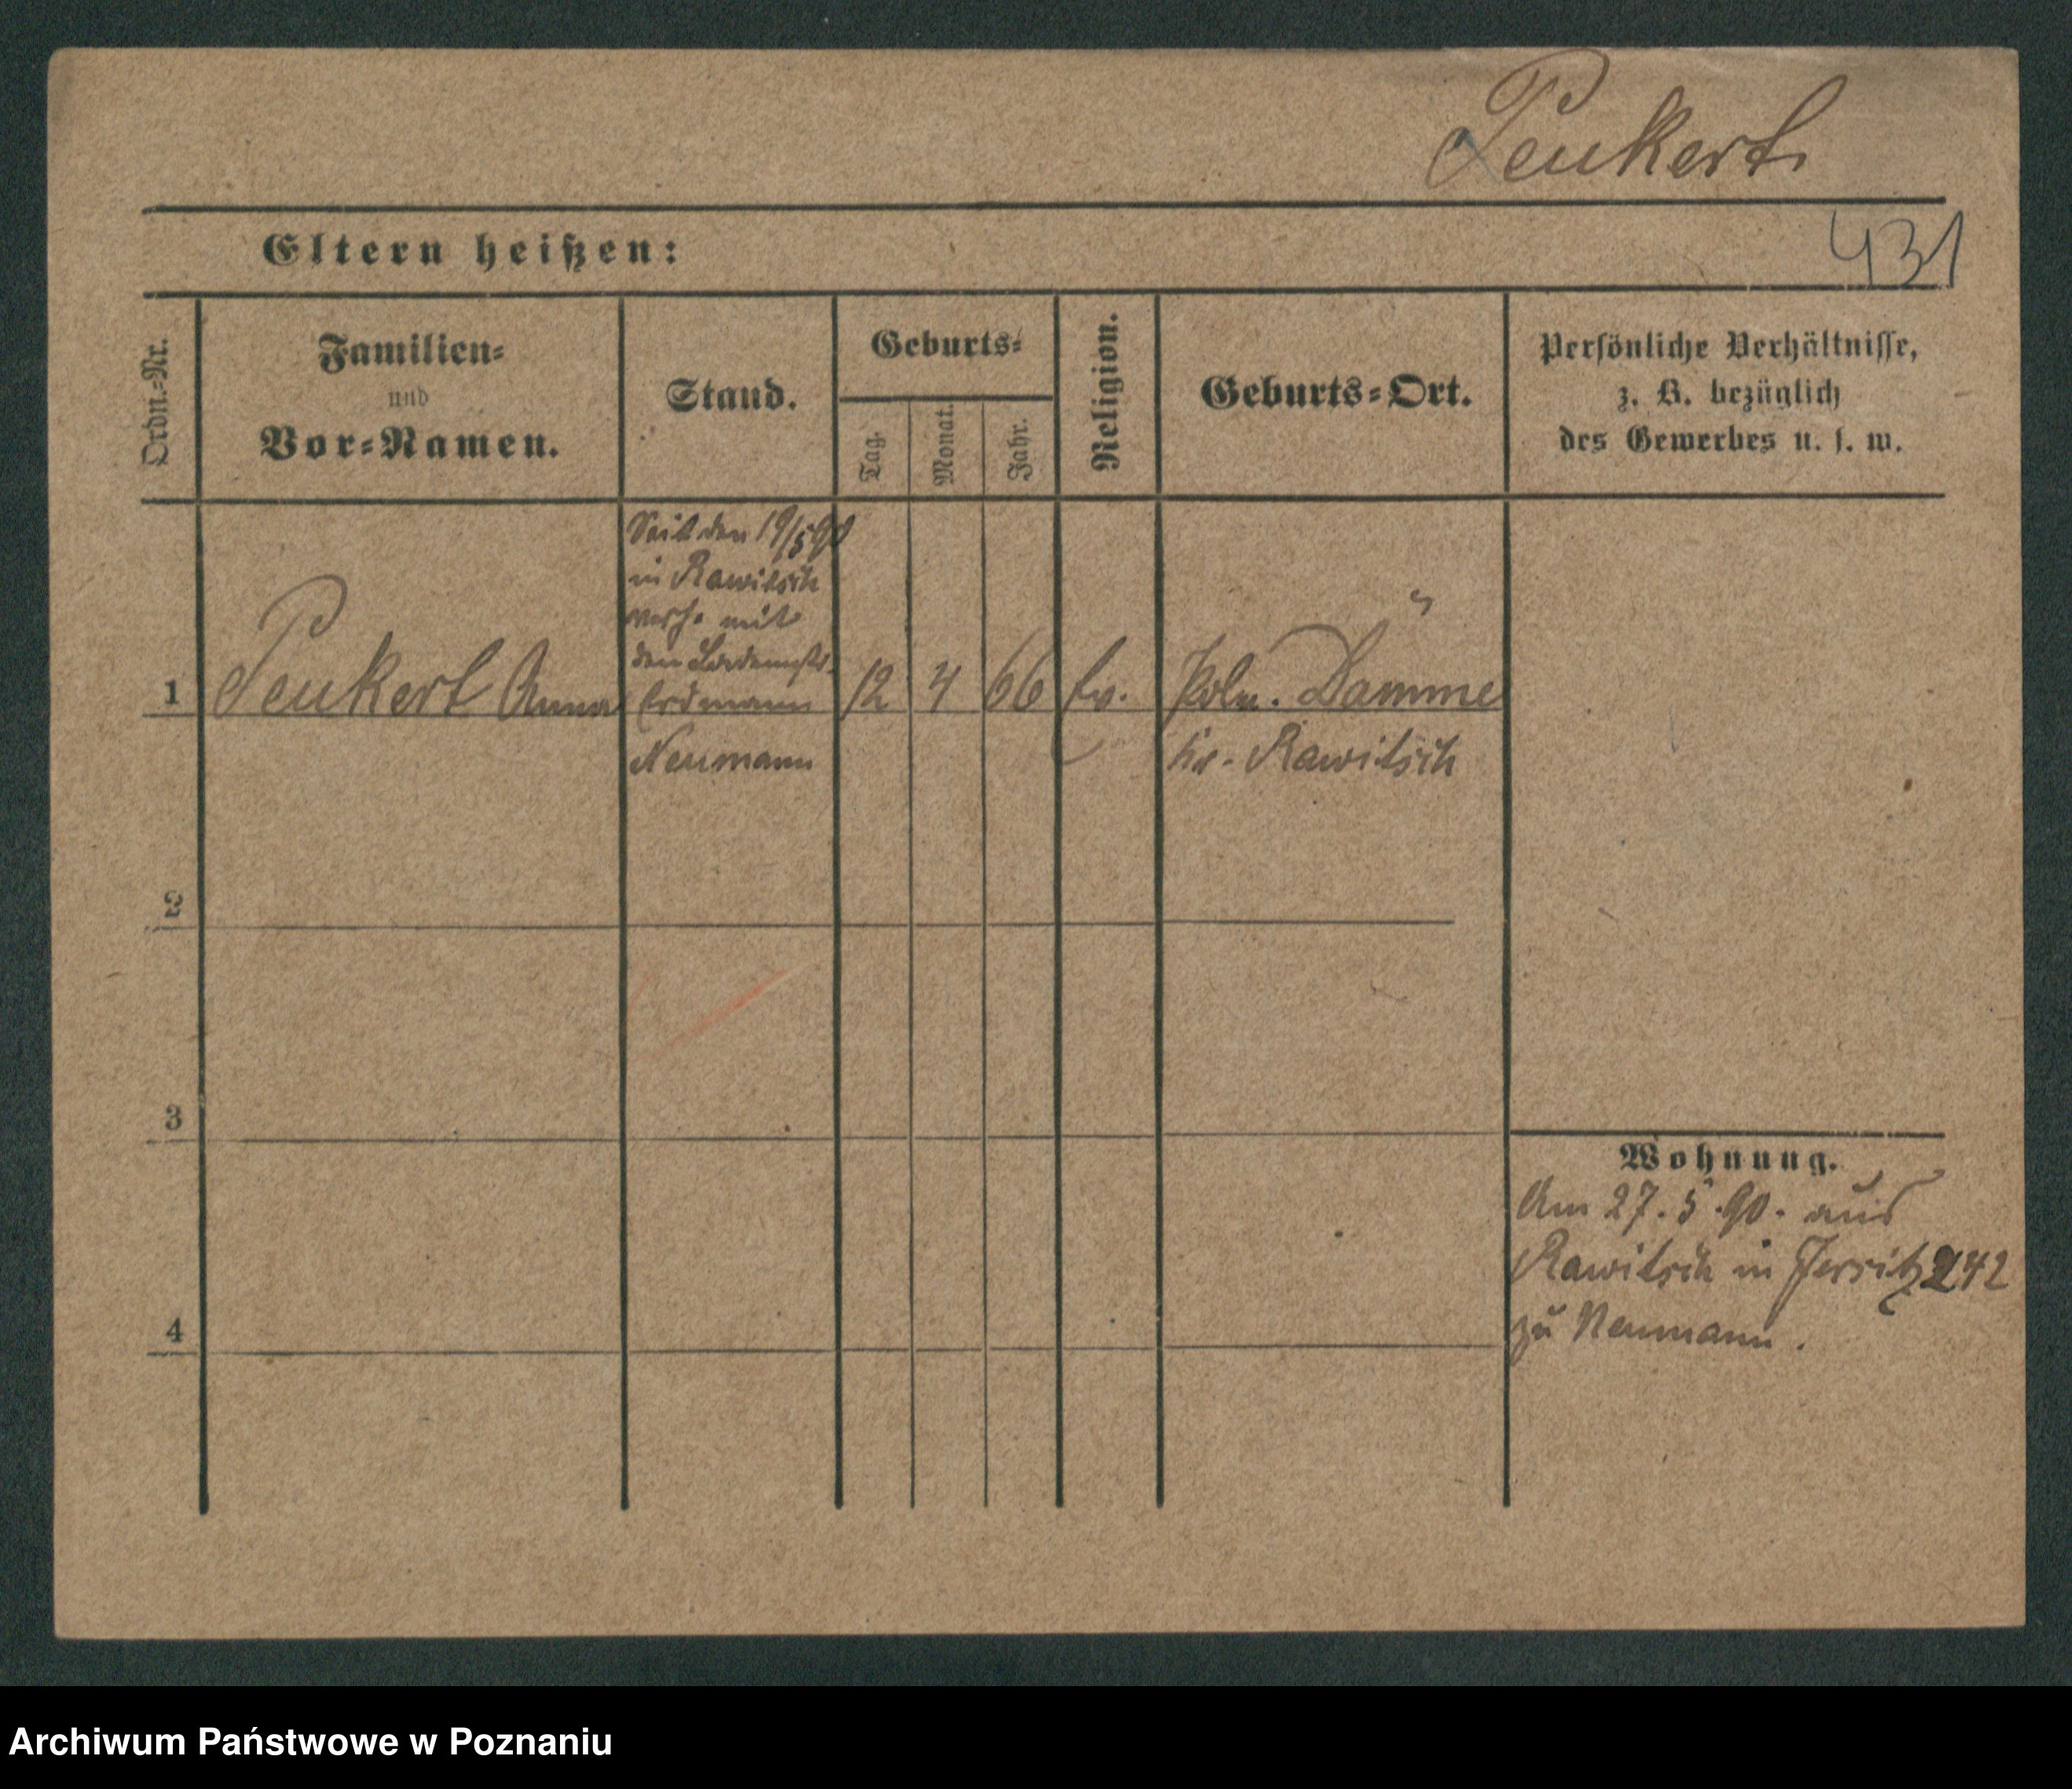 Peukert
431
Eltern heißen:
Ordn.-Nr.
Familien-
und
Vor-Namen.
Stand.
Geburts-
Tag.
Monat.
Jahr.
Religion.
Geburts-Ort.
Persönliche Verhältnisse,
z. B. bezüglich
des Gewerbes u. s. w.
1
Peukert Anna
Seit den 19/5 90
in Rawitsch
verh. mit
den
Erdmann
Neumann
12
4
66
Ev.
Poln. Damme
Kr. Rawitsch
2
3
4
Wohnung.
Am 27. 5. 90. aus
Rawitsch in Jersitz 242
zu Neumann.
Archiwum Państwowe w Poznaniu